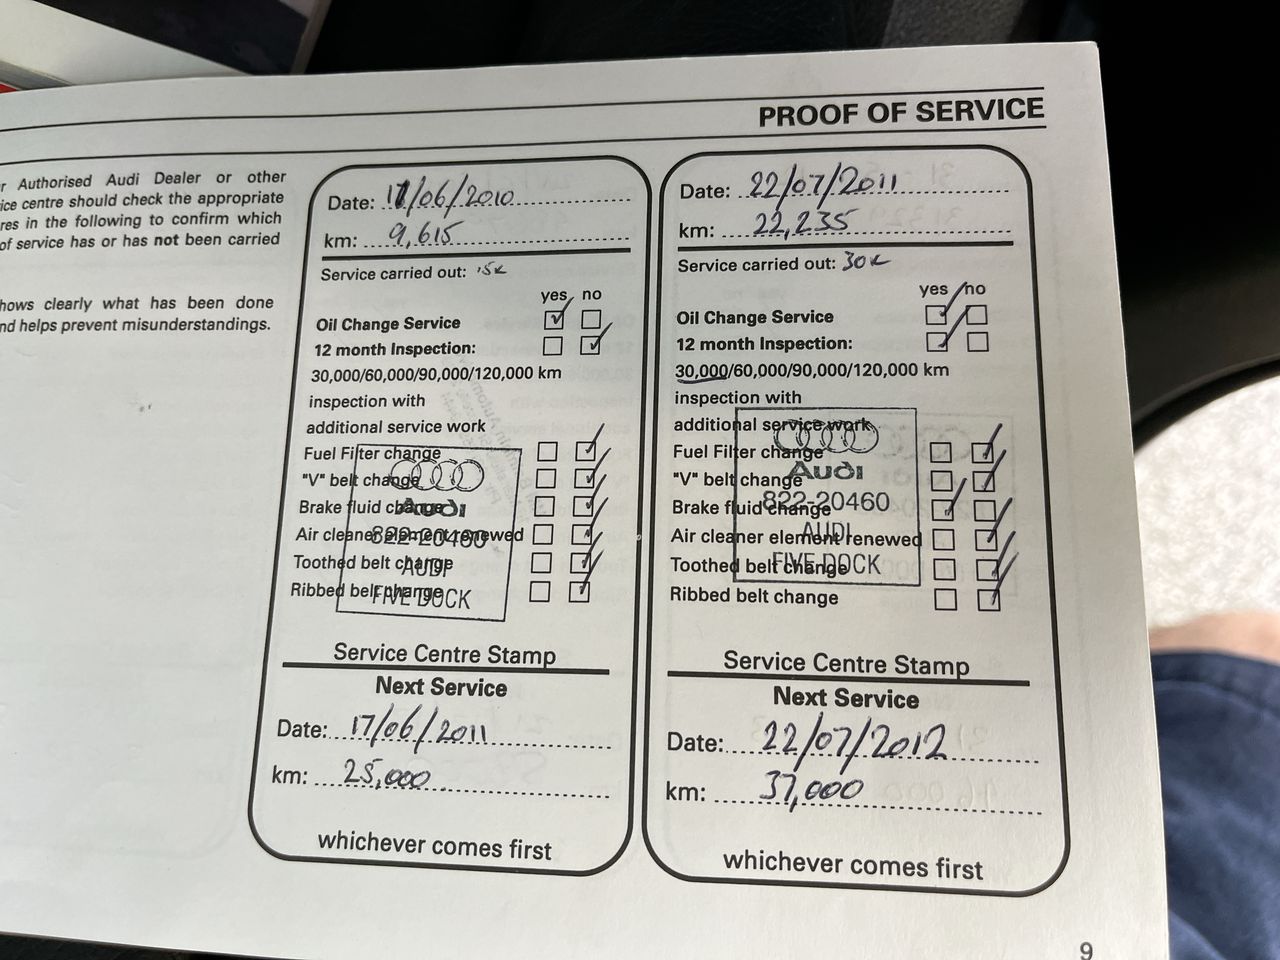 PROOF OF SERVICE
r Authorised Audi Dealer or other
ice centre should check the appropriate
res in the following to confirm which
of service has or has not been carried
hows clearly what has been done
nd helps prevent misunderstandings.
Date: 17/06/2010
km: 9,615
Service carried out: 15K
yes no
Oil Change Service
12 month Inspection:
30,000/60,000/90,000/120,000 km
inspection with
additional service work
Fuel Filter change
"V" belt change
Brake fluid change
Air cleaner element renewed
Toothed belt change
Ribbed belt change
Audi
822-20460
AUDI
FIVE DOCK
Service Centre Stamp
Next Service
Date: 17/06/2011
km: 25,000
whichever comes first
Date: 22/07/2011
km: 22,235
Service carried out: 30K
yes no
Oil Change Service
12 month Inspection:
30,000/60,000/90,000/120,000 km
inspection with
additional service work
Fuel Filter change
"V" belt change
Brake fluid change
Air cleaner element renewed
Toothed belt change
Ribbed belt change
Audi
822-20460
AUDI
FIVE DOCK
Service Centre Stamp
Next Service
Date: 22/07/2012
km: 37,000
whichever comes first
9